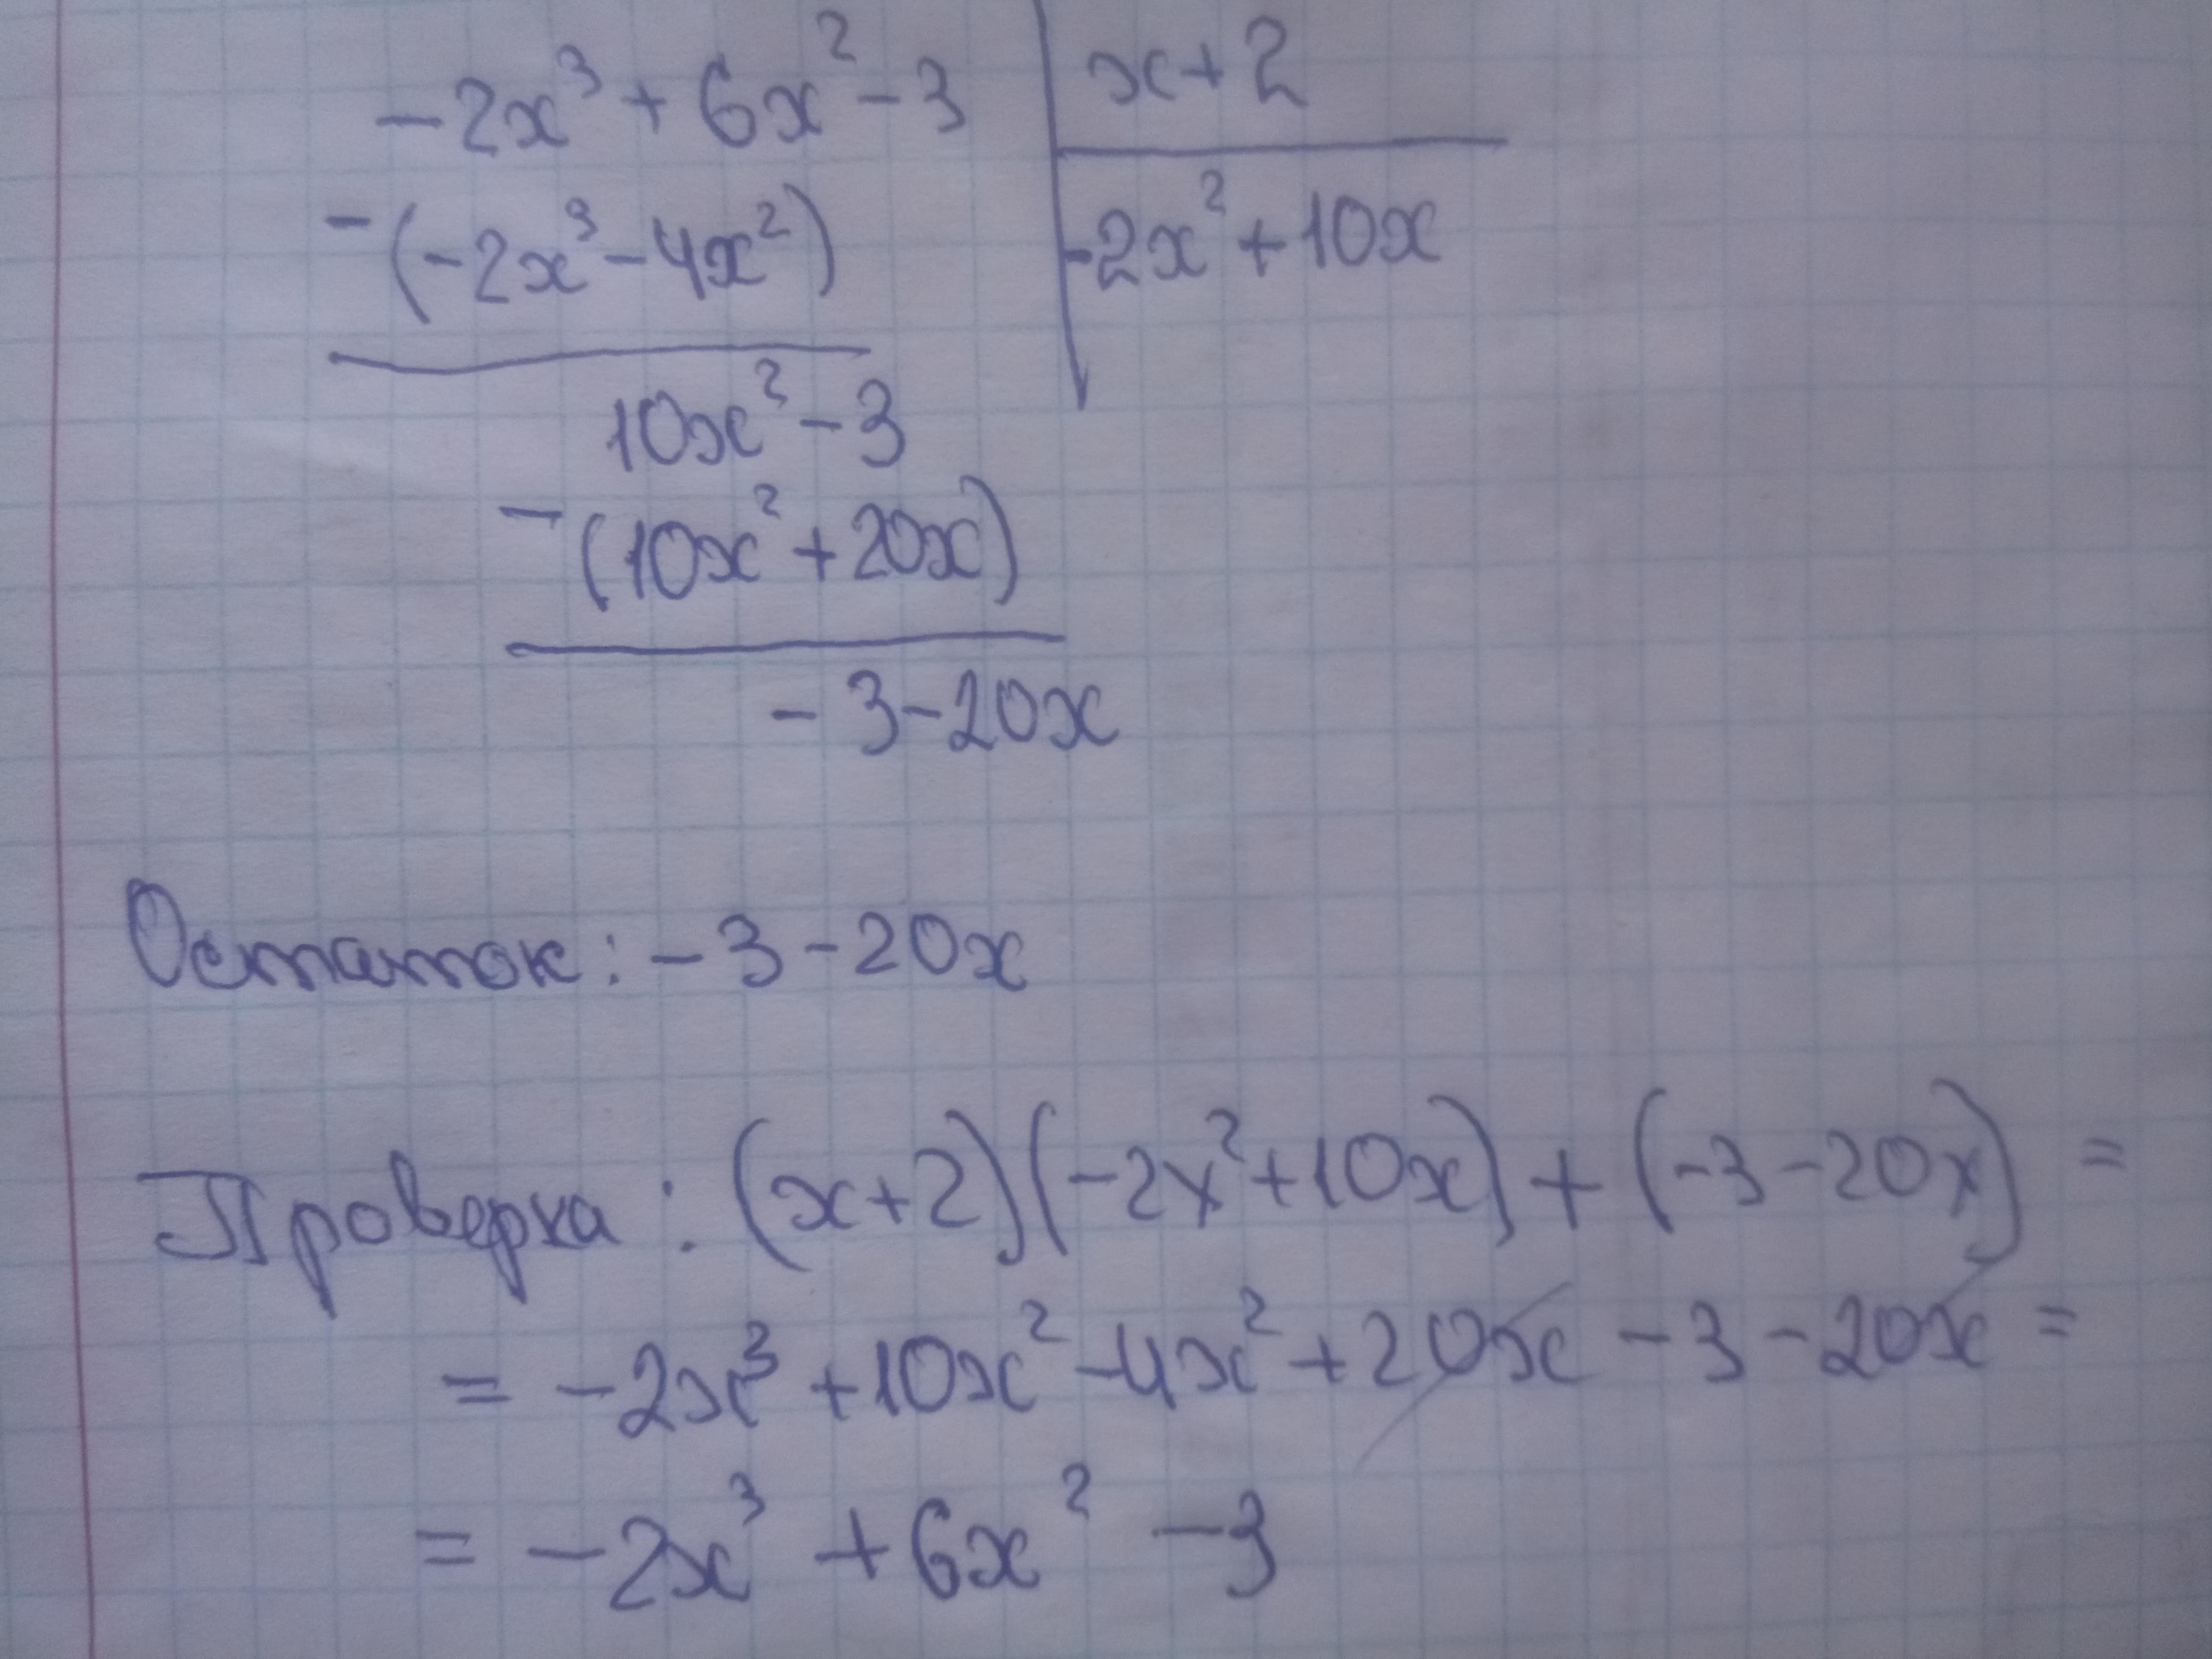 -2x³ + 6x² - 3 | x + 2
-(-2x³ - 4x²) -2x² + 10x
10x² - 3
-(10x² + 20x)
-3 - 20x
Остаток: -3 - 20x
Проверка: (x+2)(-2x²+10x) + (-3-20x) =
= -2x³ + 10x² - 4x² + 20x - 3 - 20x =
= -2x³ + 6x² - 3